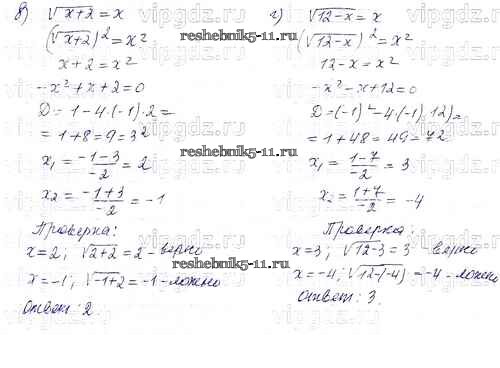 в) √x+2 = x
(√x+2)² = x²
x+2 = x²
-x²+x+2=0
D = 1-4·(-1)·2 =
= 1+8=9=3²
x₁ = (-1-3)/(-2) = 2
x₂ = (-1+3)/(-2) = -1
Проверка:
x=2; √2+2 = 2 - верно
x=-1; √-1+2 = -1 - ложно
Ответ: 2.
г) √12-x = x
(√12-x)² = x²
12-x = x²
-x²-x+12=0
D=(-1)²-4·(-1)·12)=
= 1+48 = 49 = 7²
x₁ = (1-7)/(-2) = 3
x₂ = (1+7)/(-2) = -4
Проверка:
x=3; √12-3 = 3 верно
x=-4; √12-(-4) = -4 - ложно
Ответ: 3.
reshebnik5-11.ru
reshebnik5-11.ru
reshebnik5-11.ru
vipgdz.ru